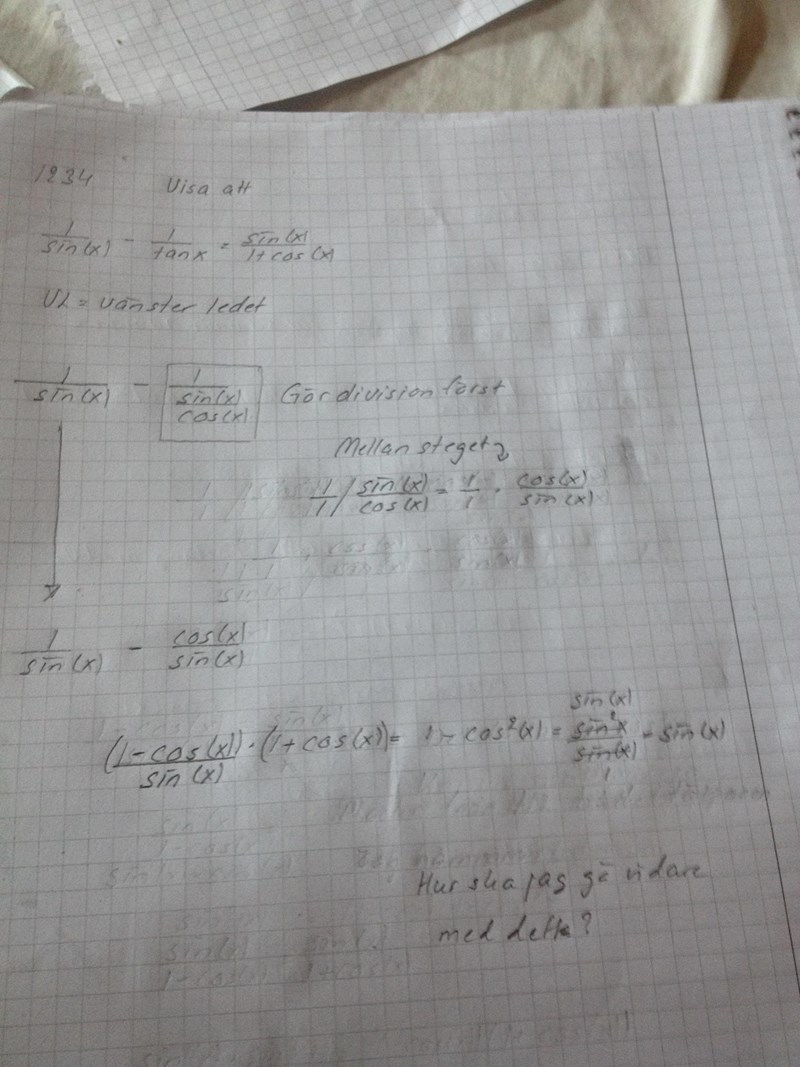 1234 Visa att
1/sin(x) - 1/tanx = sin(x)/1+cos(x)
VL = vänster ledet
1/sin(x) - 1/(sin(x)/cos(x)) Gör division först
Mellan steget
1/1 / sin(x)/cos(x) = 1/1 · cos(x)/sin(x)
1/sin(x) - cos(x)/sin(x)
(1-cos(x))/sin(x) · (1+cos(x)) = 1 - cos²(x) = sin(x) sin²x/sin(x) 1 = sin(x)
Hur ska jag gå vidare
med detta?